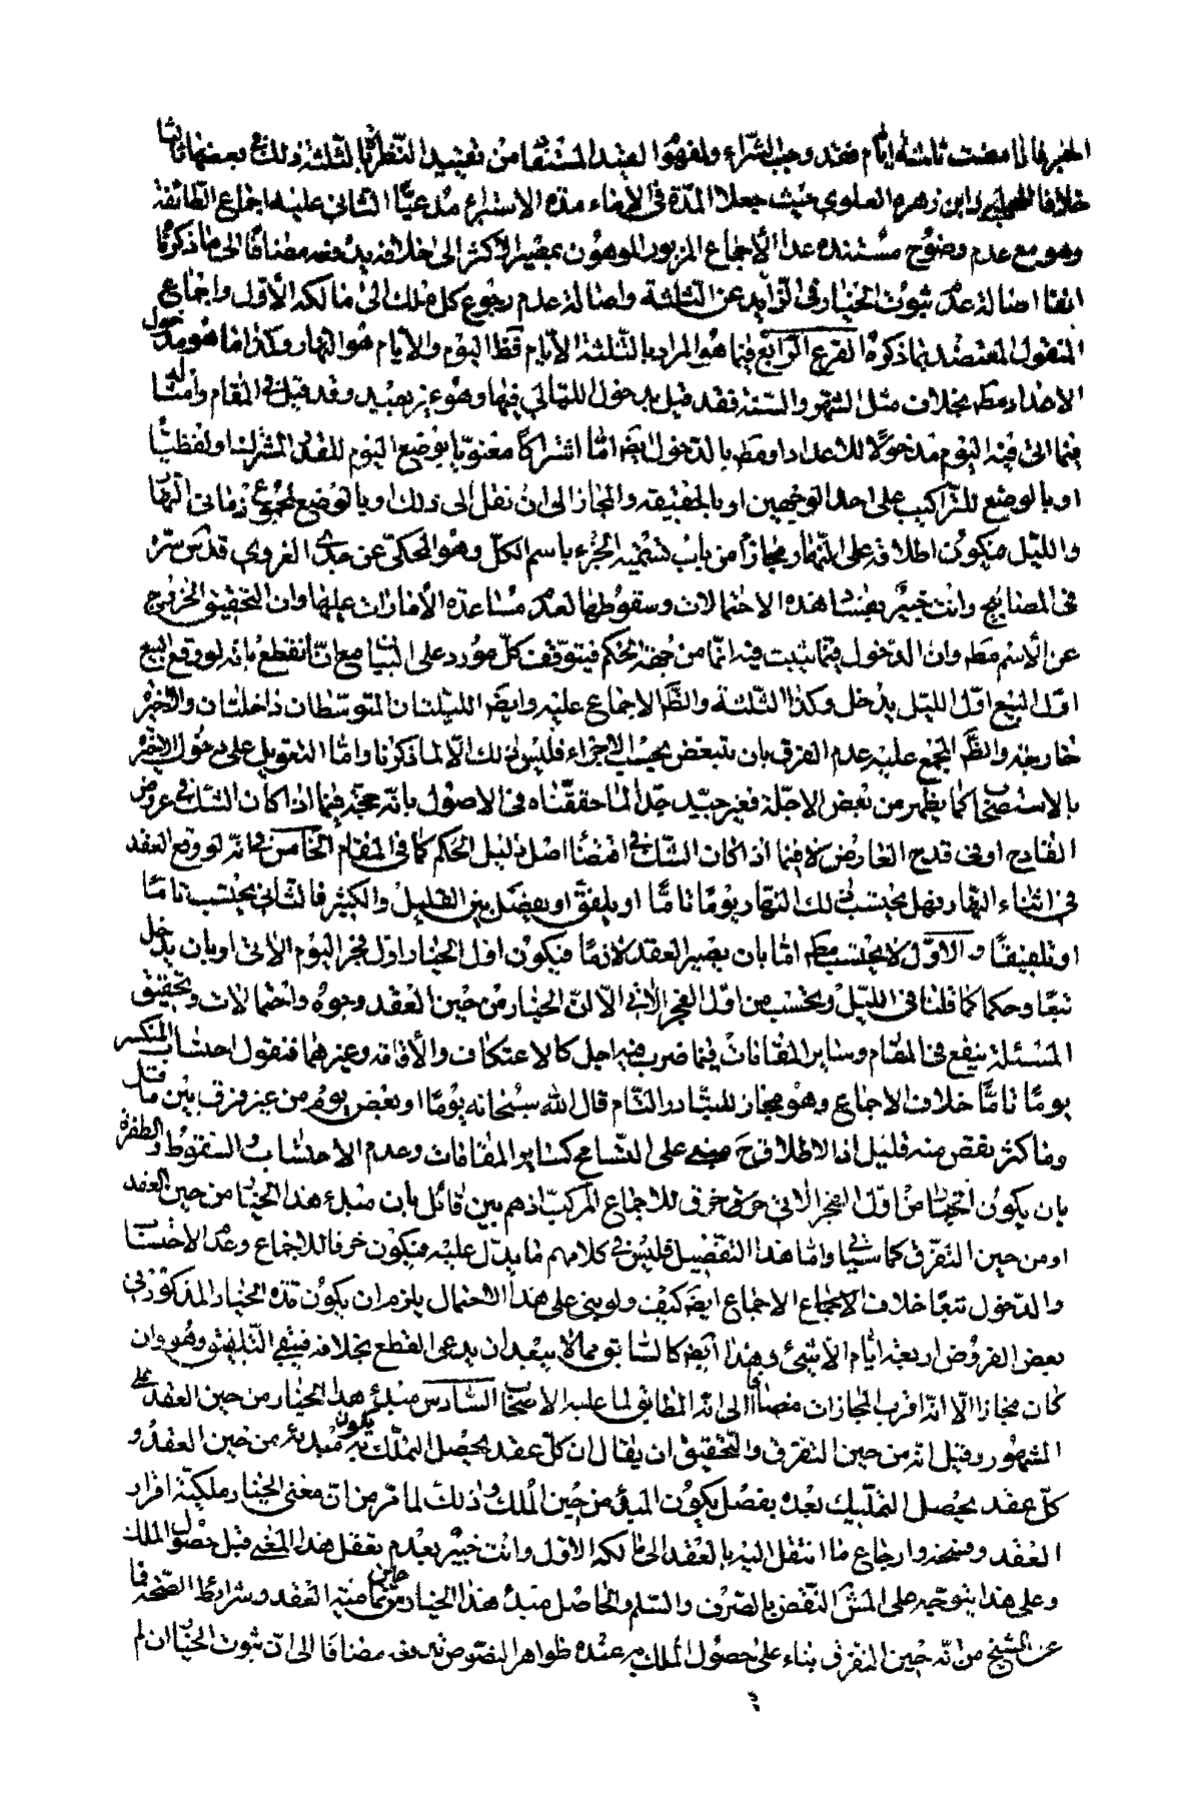 الخبر فاذا مضت ثلثة ايام فقد وجب الشراء ولمفهوم العبد المستنقا من تقييد النظرة بالثلثة ذلك مع بعضها ثالثا
خلافا للحلبي وابن زهرة العلوي حيث جعلا المدة في الاماء مدة الاستبراء مدعيا الثاني عليه اجماع الطائفة
وهو مع عدم وضوح مستنده عدا الاجماع المزبور الموهون بمصير الاكثر الى خلافه يدفعه مضافا الى ما ذكرنا
انفا اصالة عدم ثبوت الخيار في الزايد عن الثلثة واصالة عدم رجوع كل ملك الى مالكه الاول واجماع
المنقول المعتضد بما ذكروه الفرع الرابع فيما هو المراد بالثلثة الايام قط اليوم والايام هو النهار وكذا ما هو مدخول
الاعداد مط بخلاف مثل الشهر والسنة فقد قيل بدخول الليالي فيها وهو غير بعيد وقد قيل في المقام وامثاله
فيما اتى فيه اليوم مدخولا للاعداد او مط بالدخول ايضا اما اشتراكا معنويا بوضع اليوم للقدر المشترك او لفظيا
او بالوضع للتراكيب على احد الوجهين او بالحقيقة والمجاز الى ان نقل الى ذلك او بالوضع لمجموع زماني النهار
والليل فيكون اطلاقه على النهار مجازا من باب تسمية الجزء باسم الكل وهو المحكي عن جدي الغروي قدس سره
في المصابيح وانت خبير بفساد هذه الاحتمالات وسقوطها لعدم مساعدة الامارات عليها وان التحقيق الخروج
عن الاسم مط وان الدخول فيما ثبت فيه انما من جهة الحكم فيتوقف كل مورد على البيان مع انا نقطع بانه لو وقع البيع
اول البيع اول الليل يدخل وكذا الثلثة والظ الاجماع عليه وايضا الليلتان المتوسطان داخلتان والاخيرة
خارجة والظ المجمع عليه عدم الفرق بان يتبعض بحسب الاجزاء فليس ذلك الا لما ذكرنا واما التعويل على دخول الاخير
بالاستصحاب كما يظهر من بعض الاجلة فغير جيد جدا لما حققناه في الاصول بانه حجة فيما اذا كان الشك في عروض
القادح او في قدح العارض لا فيما اذا كان الشك في اقتضاء اصل دليل الحكم كما في المقام الخامس في انه لو وقع العقد
في اثناء النهار فهل يحتسب ذلك النهار يوما تاما او يلفق او يفصل بين القليل والكثير فالثاني يحتسب تاما
او تلفيقا والاول لا يحتسب مط اما بان يصير العقد لازما فيكون اول الخيار اول فجر اليوم الاتي او بان يدخل
تبعا وحكما كما قلنا في الليل ويحتسب من اول الفجر الاتي الا ان الخيار من حين العقد وجوه واحتمالات وتحقيق
المسئلة ينفع في المقام وساير المقامات فيما ضرب فيه اجل كالاعتكاف والاقامة وغيرهما فنقول احتساب المنكسر
يوما تاما خلاف الاجماع وهو مجاز للتبادر التام قال الله سبحانه يوما او بعض يوم من غير فرق بين ما قل
وما كثر بقص منه قليل اذ الاطلاق ح مبني على التسامح كساير المقامات وعدم الاحتساب والسقوط والطفرة
بان يكون الحساب من اول الفجر الاتي خرق للاجماع المركب اذ هم بين قائل بان مبدء هذا الخيار من حين العقد
او من حين التفرق كما سياتي واما هذا التفصيل فليس في كلامهم ما يدل عليه فيكون خرقا للاجماع وعدم الاحتساب
والدخول تبعا خلاف الاجماع الاجماع ايضا كيف ولو بني على هذا الاحتمال يلزم ان يكون مدة الخيار المذكور في
بعض الفروض اربعة ايام الا شيء وهذا ايضا كالسابق مما لا يبعد ان يدعى القطع بخلافه فبقي التلفيق وهو وان
كان مجازا الا انه اقرب المجازات مضافا الى انه المطابق لما عليه الاصحاب السادس مبدء هذا الخيار من حين العقد على
المشهور وقيل انه من حين التفرق والتحقيق ان يقال ان كل عقد يحصل التملك به يكون مبدئه من حين العقد و
كل عقد يحصل التمليك بعده بفصل يكون المبدء من حين الملك وذلك لما مر من ان معنى الخيار ملكية اقرار
العقد وفسخه وارجاع ما انتقل اليه بالعقد الى مالكه الاول وانت خبير بعدم تعقل هذا المعنى قبل حصول الملك
وعلى هذا يتوجه على المش النقض بالصرف والسلم والحاصل مبدء هذا الخيار من حين تمامية العقد وشرائط الصحة فما
عن الشيخ من انه حين التفرق بناء على حصول الملك به عنده ظواهر النصوص تدفعه مضافا الى ان ثبوت الخيار ان لم